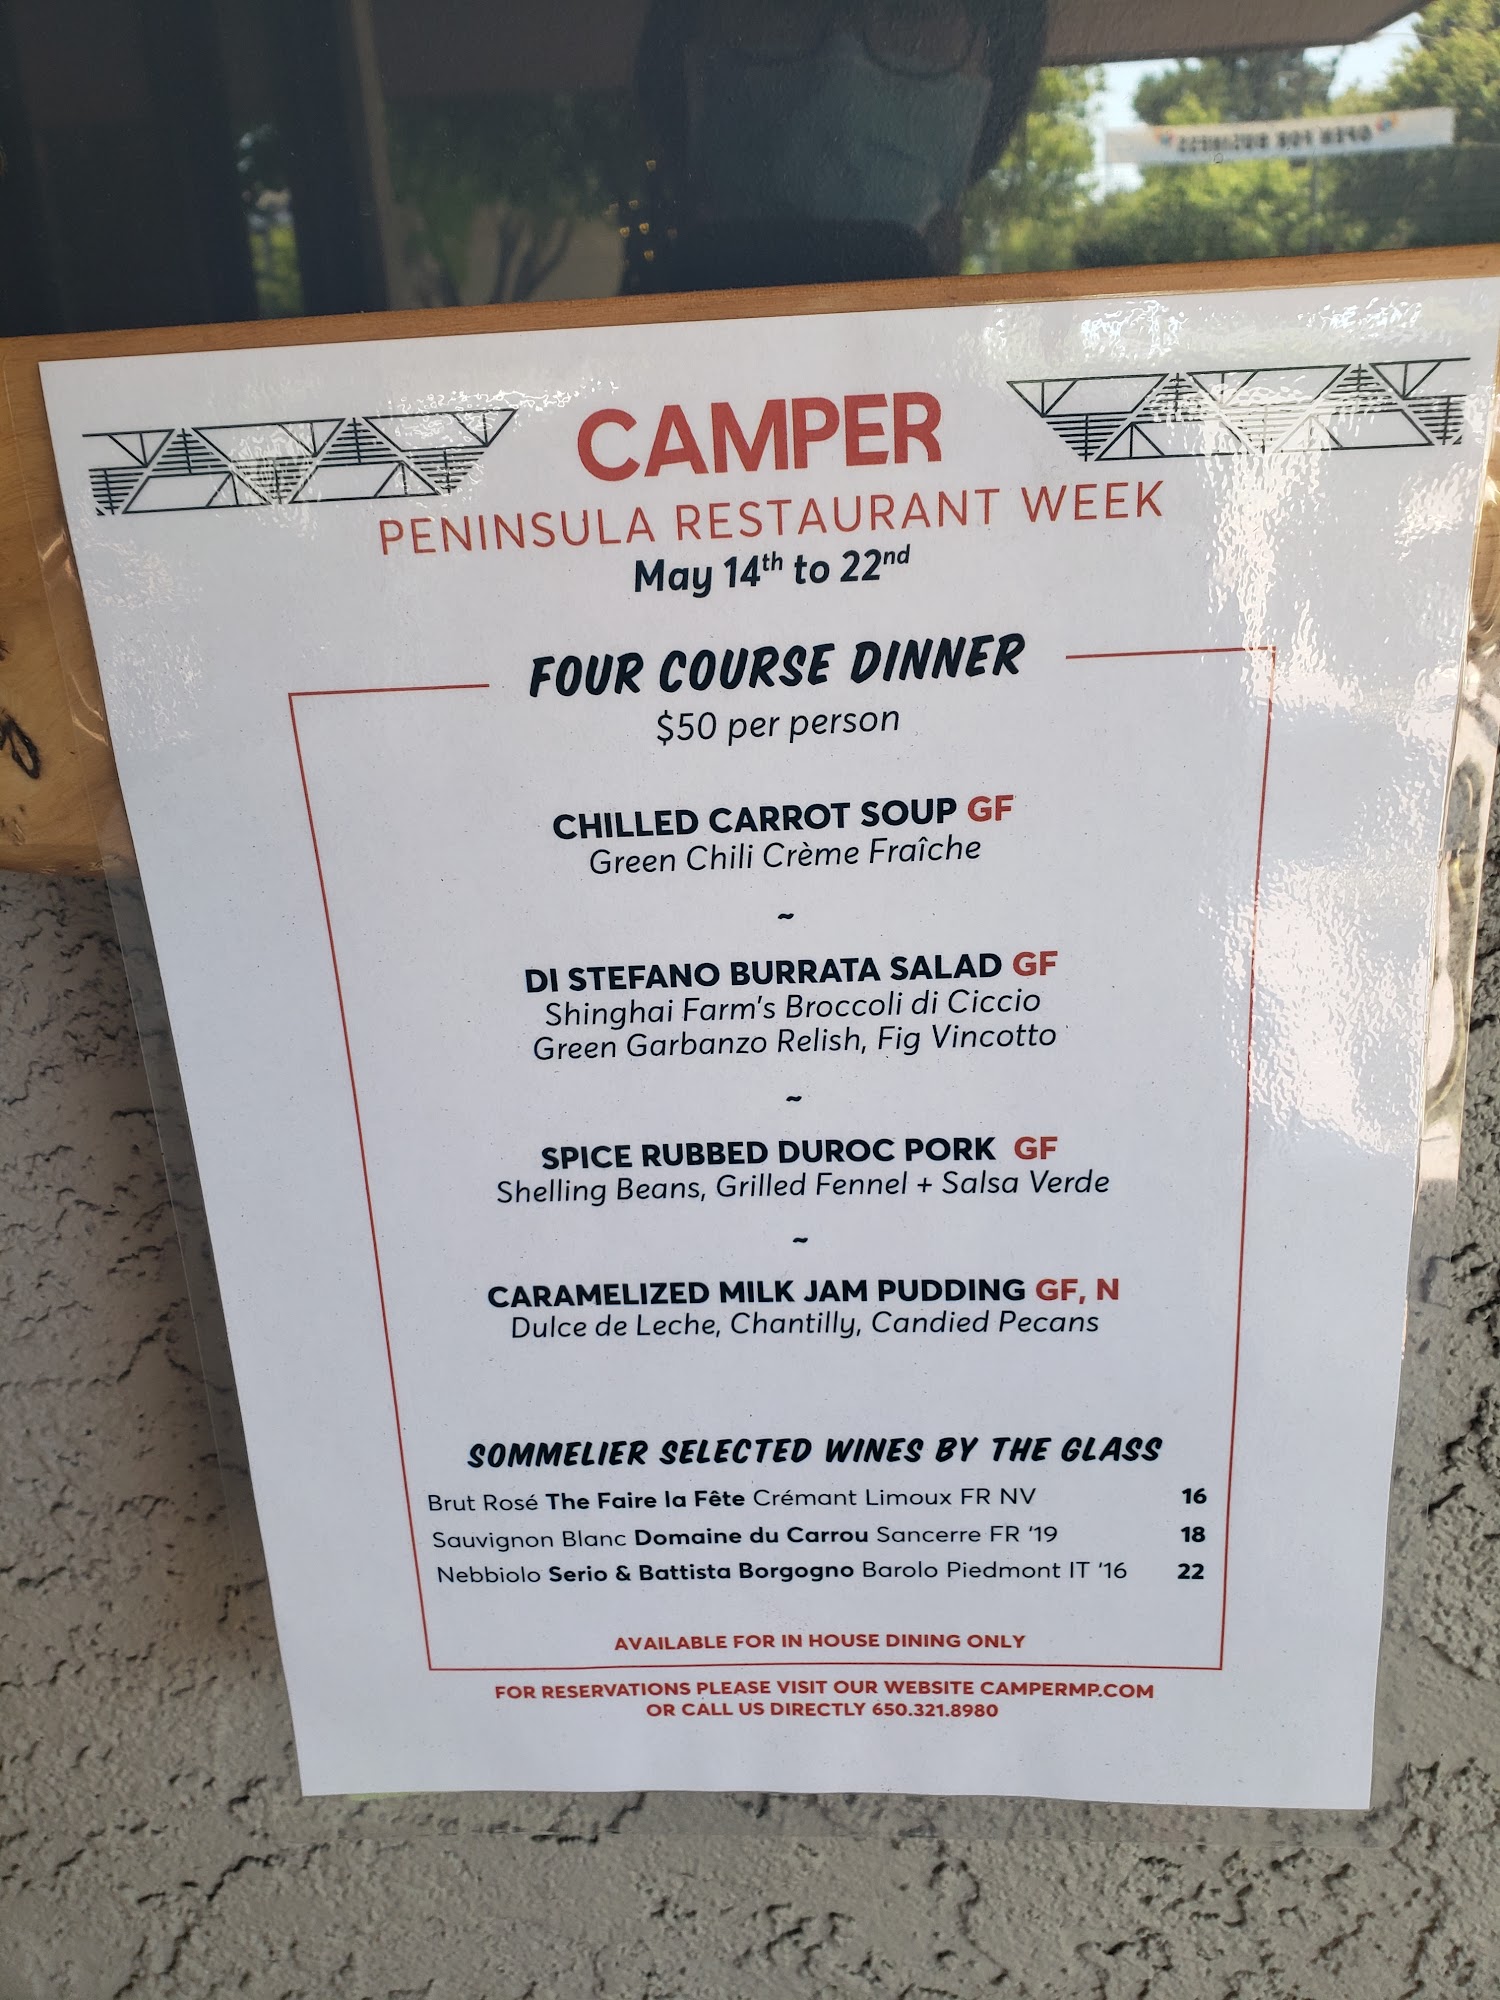 OPEN FOR BUSINESS
CAMPER
PENINSULA RESTAURANT WEEK
May 14th to 22nd
FOUR COURSE DINNER
$50 per person
CHILLED CARROT SOUP GF
Green Chili Crème Fraîche
~
DI STEFANO BURRATA SALAD GF
Shinghai Farm's Broccoli di Ciccio
Green Garbanzo Relish, Fig Vincotto
~
SPICE RUBBED DUROC PORK GF
Shelling Beans, Grilled Fennel + Salsa Verde
~
CARAMELIZED MILK JAM PUDDING GF, N
Dulce de Leche, Chantilly, Candied Pecans
SOMMELIER SELECTED WINES BY THE GLASS
Brut Rosé The Faire la Fête Crémant Limoux FR NV 16
Sauvignon Blanc Domaine du Carrou Sancerre FR '19 18
Nebbiolo Serio & Battista Borgogno Barolo Piedmont IT '16 22
AVAILABLE FOR IN HOUSE DINING ONLY
FOR RESERVATIONS PLEASE VISIT OUR WEBSITE CAMPERMP.COM
OR CALL US DIRECTLY 650.321.8980